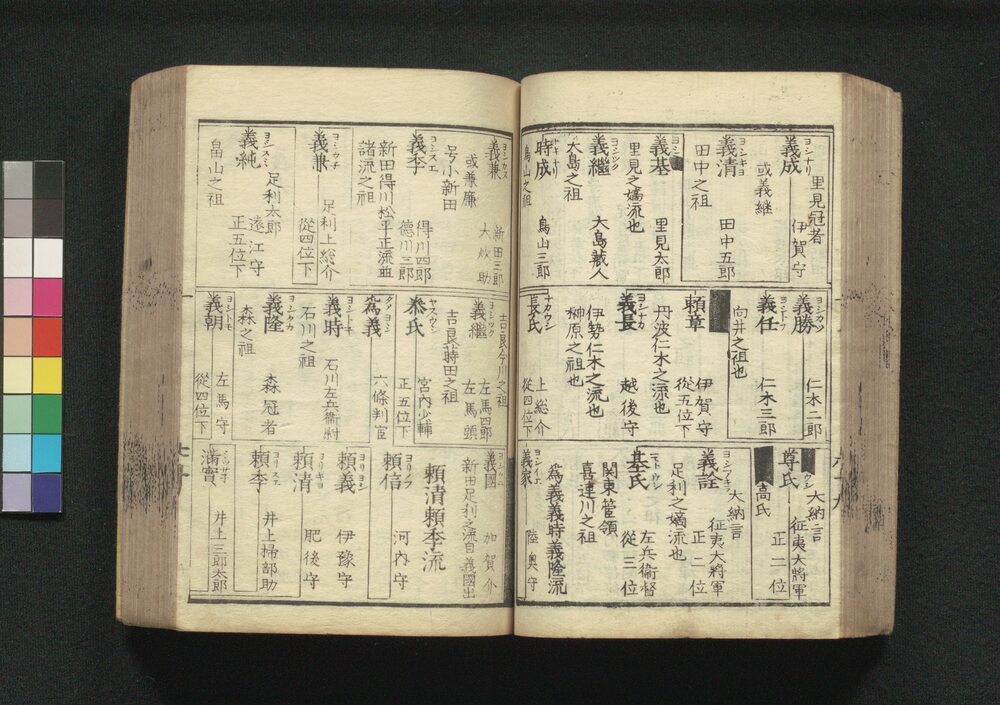 里見冠者
義成 ヨシナリ 伊賀守
或義継
義清 ヨシキヨ 田中五郎
田中之祖
義基 ヨシ 里見太郎
里見之嫡流也
義継 ヨシツグ 大島蔵人
大島之祖
時成 トキナリ 鳥山三郎
鳥山之祖
義勝 ヨシカツ 仁木二郎
義任 ヨシトフ 仁木三郎
向井之祖也
頼章 伊賀守
從五位下
丹波仁木之流也
義長 ヨシナカ 越後守
伊勢仁木之流也
榊原之祖也
長氏 ナカウシ 上総介
從四位下
大納言
尊氏 ウシ 征夷大將軍
正二位
高氏
大納言
義詮 ヨシアキラ 征夷大將軍
正二位
足利之嫡流也
基氏 モトウシ 左兵衛督
從三位
関東管領
喜連川之祖
為義義時義隆流
義家 ヨシイエ 陸奥守
義兼 ヨシカス 新田三郎
大炊助
或兼廉
号小新田
義季 ヨシスエ 得川四郎
德川三郎
新田得川松平正流血
諸流之祖
義兼 ヨシカチ 足利上総介
從四位下
義純 ヨシスミ 足利太郎
遠江守
正五位下
畠山之祖
吉良今川之祖
義継 ヨシツク 左馬四郎
左馬頭
吉良蒔田之祖
泰氏 ヤスウシ 宮内少輔
正五位下
為義 タメヨシ 六條判官
義時 ヨシトキ 石川左兵衛尉
石川之祖
義隆 ヨシタカ 森冠者
森之祖
義朝 ヨシトモ 左馬守
從四位下
義國 加賀介
新田足利之流自義國出
頼清頼季流
頼信 ヨリノフ 河内守
頼義 ヨリヨシ 伊豫守
頼清 ヨリキヨ 肥後守
頼季 ヨリスエ 井上掃部助
滿實 ミツサネ 井上三郎太郎